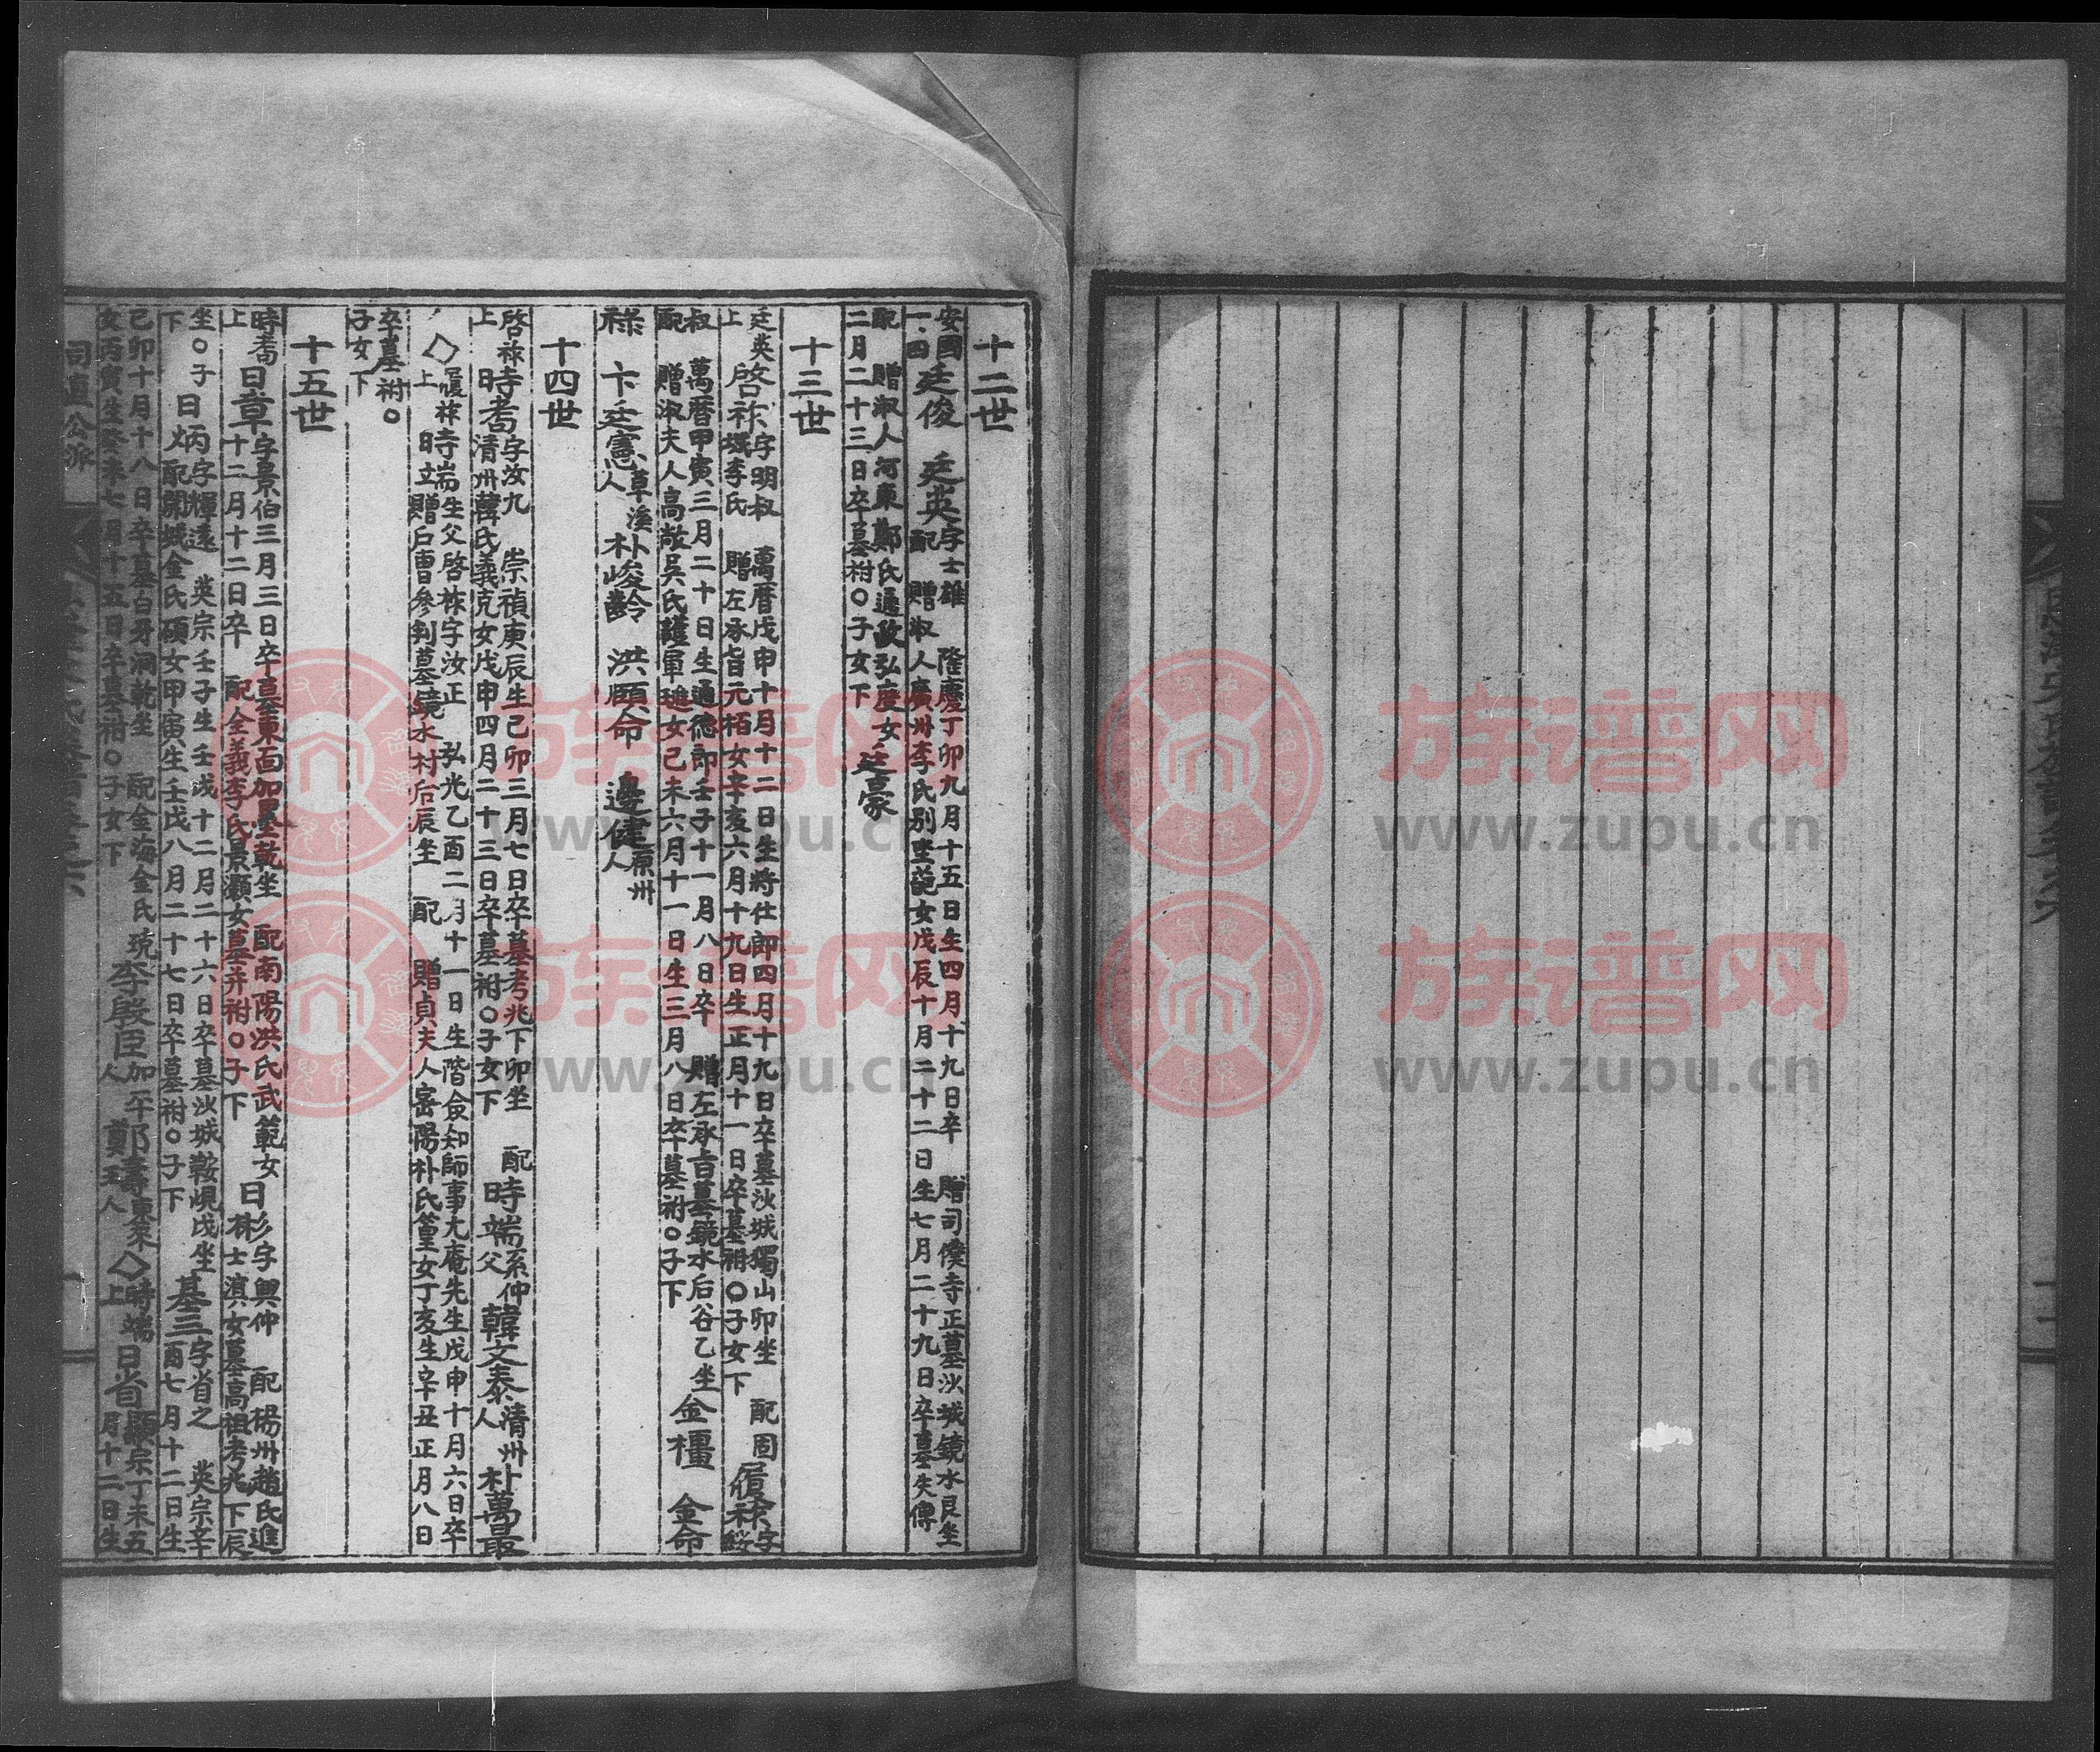 十二世
安國 廷俊 廷英 字士雄 隆慶丁卯九月十五日生四月十九日卒 贈司僕寺正墓沙城鏡水艮坐
一四 配 贈淑人廣州李氏別坐 女戊辰十月二十二日生七月二十九日卒墓失傳
配 贈淑人河東鄭氏通政弘慶女 廷豪
二月二十三日卒墓祔○子女下
十三世
廷英 啓祿 字明叔 萬曆戊申十月十二日生將仕郎四月十九日卒墓沙城獨山卯坐 配固 履祿 字
上 城李氏 贈左承旨元栢女辛亥六月十九日生正月十一日卒墓祔○子女下 綏
叔 萬曆甲寅三月二十日生通德郎壬子十一月八日卒 贈左承旨墓鏡水后谷乙坐 金橿 金命
配 贈淑夫人高敞吳氏護軍 女己未六月十一日生三月八日卒墓祔○子下
祿 卞廷憲 草溪人 朴峻齡 洪願命 邊健 原州人
十四世
啓祿 時耉 字汝九 崇禎庚辰生己卯三月七日卒墓考兆下卯坐 配 時端 系仲父 韓文泰 清州人 朴萬最
上 清州韓氏義克女戊申四月二十三日卒墓祔○子女下
◇履祿上 時端 生父啓祿字汝正 弘光乙酉二月十一日生階僉知師事尤庵先生戊申十月六日卒
日立 贈戶曹參判墓鏡水村后辰坐 配 贈貞夫人密陽朴氏篁女丁亥生辛丑正月八日
卒墓祔○
子女下
十五世
時耉 日章 字景伯三月三日卒墓東面加 乾坐 配南陽洪氏武範女 日彬 字興仲 配楊州趙氏進
上 十二月十二日卒 配全義李氏景灝女墓并祔○子下 士濵女墓高祖考兆下辰
坐○子 日炳 字輝遠 英宗壬子生壬戌十二月二十六日卒墓沙城鞍峴戊坐 基三 字省之 英宗辛
下 配開城金氏碩女甲寅生壬戌八月二十七日卒墓祔○子下 酉七月十二日生
己卯十月十八日卒墓白牙洞乾坐 配金海金氏 琓 李殷臣 加平人 鄭壽王 東萊人 ◇時端上 日省 顯宗丁未五
女丙寅生癸未七月十五日卒墓祔○子女下 月十二日生
司直公派
族谱网
www.zupu.cn
族谱网
www.zupu.cn
族谱网
www.zupu.cn
族谱网
www.zupu.cn